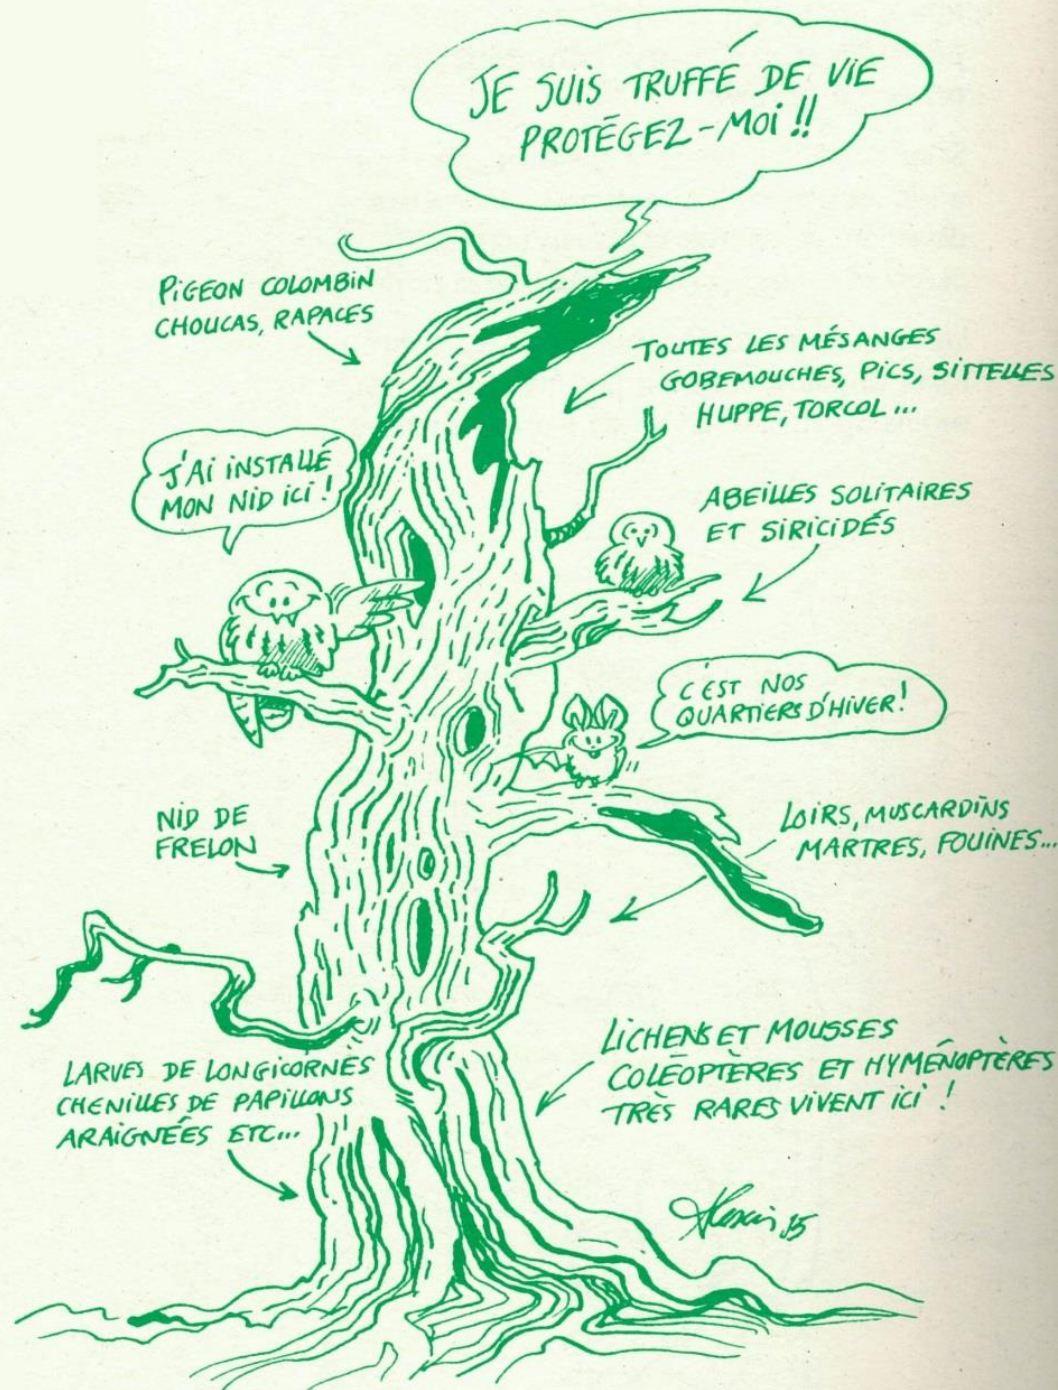 JE SUIS TRUFFÉ DE VIE
PROTÉGEZ-MOI !!
PIGEON COLOMBIN
CHOUCAS, RAPACES
TOUTES LES MÉSANGES
GOBEMOUCHES, PICS, SITTELLES
HUPPE, TORCOL ...
J'AI INSTALLÉ
MON NID ICI !
ABEILLES SOLITAIRES
ET SIRICIDÉS
C'EST NOS
QUARTIERS D'HIVER !
NID DE
FRELON
LOIRS, MUSCARDINS
MARTRES, FOUINES...
LARVES DE LONGICORNES
CHENILLES DE PAPILLONS
ARAIGNÉES ETC...
LICHENS ET MOUSSES
COLÉOPTÈRES ET HYMÉNOPTÈRES
TRÈS RARES VIVENT ICI !